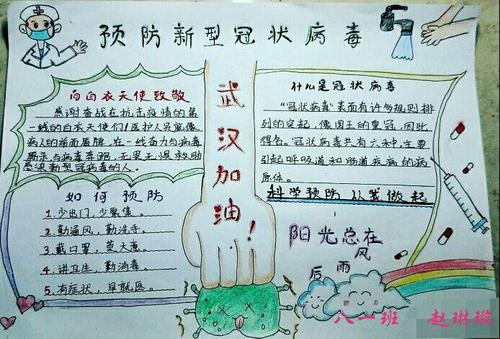 预防新型冠状病毒
向白衣天使致敬
感谢奋战在抗击疫情的第
一线的白衣天使们！医护人员就像
病人的前面盾牌，在一线奋力与病毒
感染新冠病毒的人。
如何预防
1.少出门，少聚集。
2.勤通风，勤洗手。
3.戴口罩，莫大意。
4.讲卫生，勤消毒。
5.有症状，早就医。
武汉加油！
什么是冠状病毒
"冠状病毒"表面有许多规则排
列的突起，像国王的皇冠，因此
得名。冠状病毒共有六种，主要
引起呼吸道和肠道疾病的病
原体。
科学预防 从我做起
阳光总在
风
雨
后
八一班 赵琳